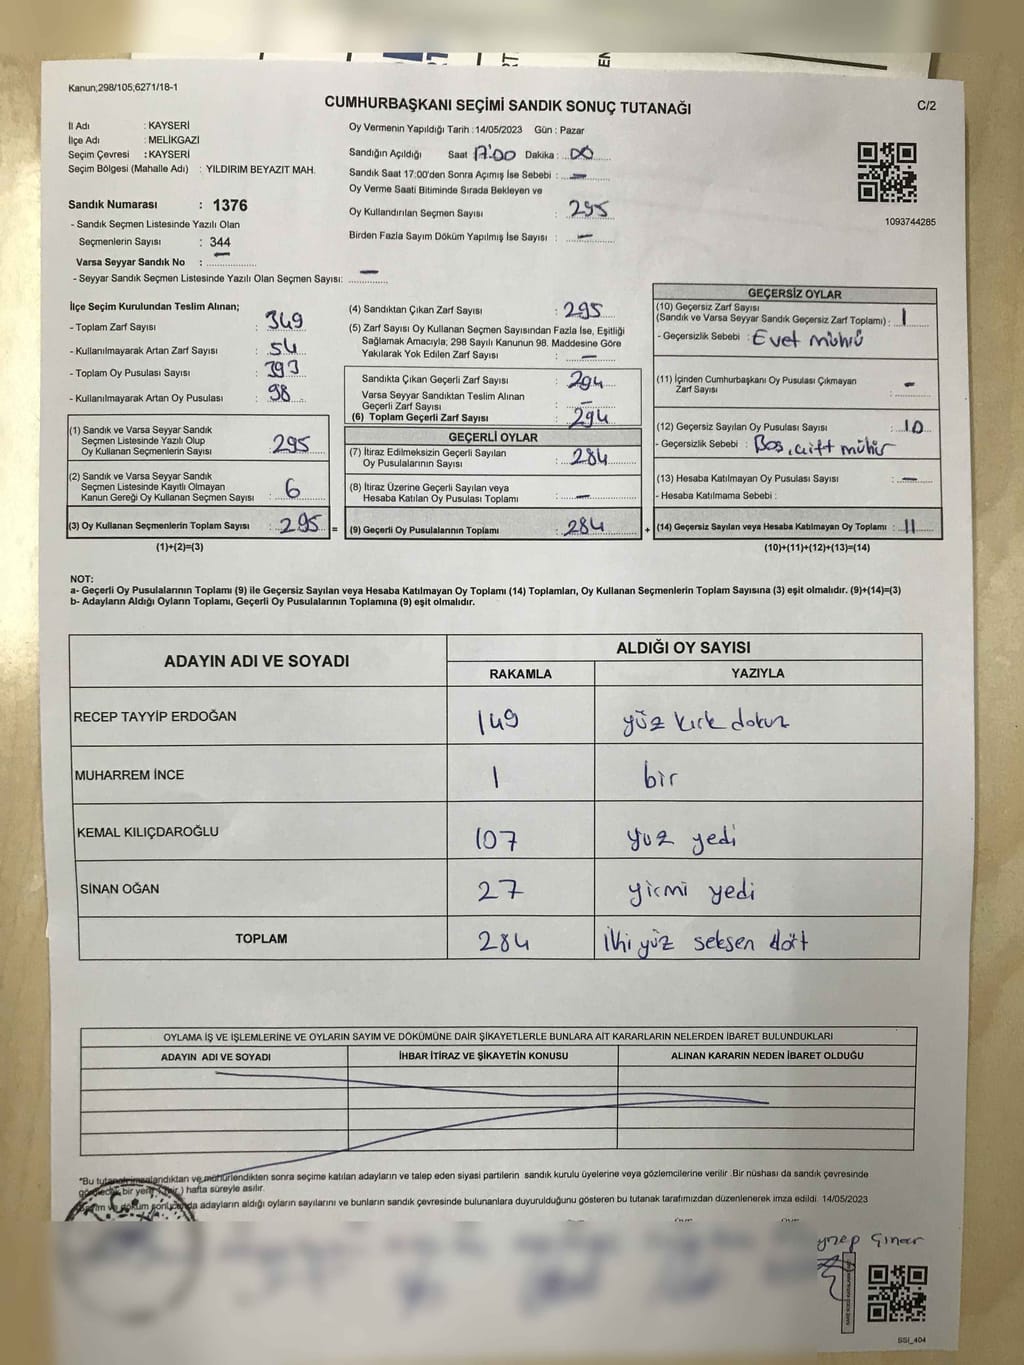 Kanun;298/105;6271/18-1
CUMHURBAŞKANI SEÇİMİ SANDIK SONUÇ TUTANAĞI
C/2
İl Adı : KAYSERİ
İlçe Adı : MELİKGAZİ
Seçim Çevresi : KAYSERİ
Seçim Bölgesi (Mahalle Adı) : YILDIRIM BEYAZIT MAH.
Sandık Numarası : 1376
- Sandık Seçmen Listesinde Yazılı Olan
Seçmenlerin Sayısı : 344
Varsa Seyyar Sandık No : —
- Seyyar Sandık Seçmen Listesinde Yazılı Olan Seçmen Sayısı: —
Oy Vermenin Yapıldığı Tarih : 14/05/2023 Gün : Pazar
Sandığın Açıldığı Saat 17:00 Dakika : 00
Sandık Saat 17:00'den Sonra Açımış İse Sebebi : —
Oy Verme Saati Bitiminde Sırada Bekleyen ve
Oy Kullandırılan Seçmen Sayısı : 295
Birden Fazla Sayım Döküm Yapılmış İse Sayısı : —
1093744285
İlçe Seçim Kurulundan Teslim Alınan;
- Toplam Zarf Sayısı : 349
- Kullanılmayarak Artan Zarf Sayısı : 54
- Toplam Oy Pusulası Sayısı : 393
- Kullanılmayarak Artan Oy Pusulası : 98
(1) Sandık ve Varsa Seyyar Sandık
Seçmen Listesinde Yazılı Olup
Oy Kullanan Seçmenlerin Sayısı : 295
(2) Sandık ve Varsa Seyyar Sandık
Seçmen Listesinde Kayıtlı Olmayan
Kanun Gereği Oy Kullanan Seçmen Sayısı : 6
(3) Oy Kullanan Seçmenlerin Toplam Sayısı : 295 =
(1)+(2)=(3)
(4) Sandıktan Çıkan Zarf Sayısı : 295
(5) Zarf Sayısı Oy Kullanan Seçmen Sayısından Fazla İse, Eşitliği
Sağlamak Amacıyla; 298 Sayılı Kanunun 98. Maddesine Göre
Yakılarak Yok Edilen Zarf Sayısı : —
Sandıkta Çıkan Geçerli Zarf Sayısı : 294
Varsa Seyyar Sandıktan Teslim Alınan
Geçerli Zarf Sayısı : —
(6) Toplam Geçerli Zarf Sayısı : 294
GEÇERLİ OYLAR
(7) İtiraz Edilmeksizin Geçerli Sayılan
Oy Pusulalarının Sayısı : 284
(8) İtiraz Üzerine Geçerli Sayılan veya
Hesaba Katılan Oy Pusulası Toplamı : —
(9) Geçerli Oy Pusulalarının Toplamı : 284 +
GEÇERSİZ OYLAR
(10) Geçersiz Zarf Sayısı
(Sandık ve Varsa Seyyar Sandık Geçersiz Zarf Toplamı) : 1
- Geçersizlik Sebebi : Evet mührü
(11) İçinden Cumhurbaşkanı Oy Pusulası Çıkmayan
Zarf Sayısı : —
(12) Geçersiz Sayılan Oy Pusulası Sayısı : 10
- Geçersizlik Sebebi : Boş, çift mühür
(13) Hesaba Katılmayan Oy Pusulası Sayısı : —
- Hesaba Katılmama Sebebi :
(14) Geçersiz Sayılan veya Hesaba Katılmayan Oy Toplamı : 11
(10)+(11)+(12)+(13)=(14)
NOT:
a- Geçerli Oy Pusulalarının Toplamı (9) ile Geçersiz Sayılan veya Hesaba Katılmayan Oy Toplamı (14) Toplamları, Oy Kullanan Seçmenlerin Toplam Sayısına (3) eşit olmalıdır. (9)+(14)=(3)
b- Adayların Aldığı Oyların Toplamı, Geçerli Oy Pusulalarının Toplamına (9) eşit olmalıdır.
ADAYIN ADI VE SOYADI
ALDIĞI OY SAYISI
RAKAMLA YAZIYLA
RECEP TAYYİP ERDOĞAN 149 yüz kırk dokuz
MUHARREM İNCE 1 bir
KEMAL KILIÇDAROĞLU 107 yuz yedi
SİNAN OĞAN 27 yirmi yedi
TOPLAM 284 iki yüz seksen dört
OYLAMA İŞ VE İŞLEMLERİNE VE OYLARIN SAYIM VE DÖKÜMÜNE DAİR ŞİKAYETLERLE BUNLARA AİT KARARLARIN NELERDEN İBARET BULUNDUKLARI
ADAYIN ADI VE SOYADI İHBAR İTİRAZ VE ŞİKAYETİN KONUSU ALINAN KARARIN NEDEN İBARET OLDUĞU
*Bu tutanak imzalandıktan ve mühürlendikten sonra seçime katılan adayların ve talep eden siyasi partilerin sandık kurulu üyelerine veya gözlemcilerine verilir. Bir nüshası da sandık çevresinde
bir yere hafta süreyle asılır.
döküm sonucunda adayların aldığı oyların sayılarını ve bunların sandık çevresinde bulunanlara duyurulduğunu gösteren bu tutanak tarafımızdan düzenlenerek imza edildi. 14/05/2023
T.C.
SSI_404